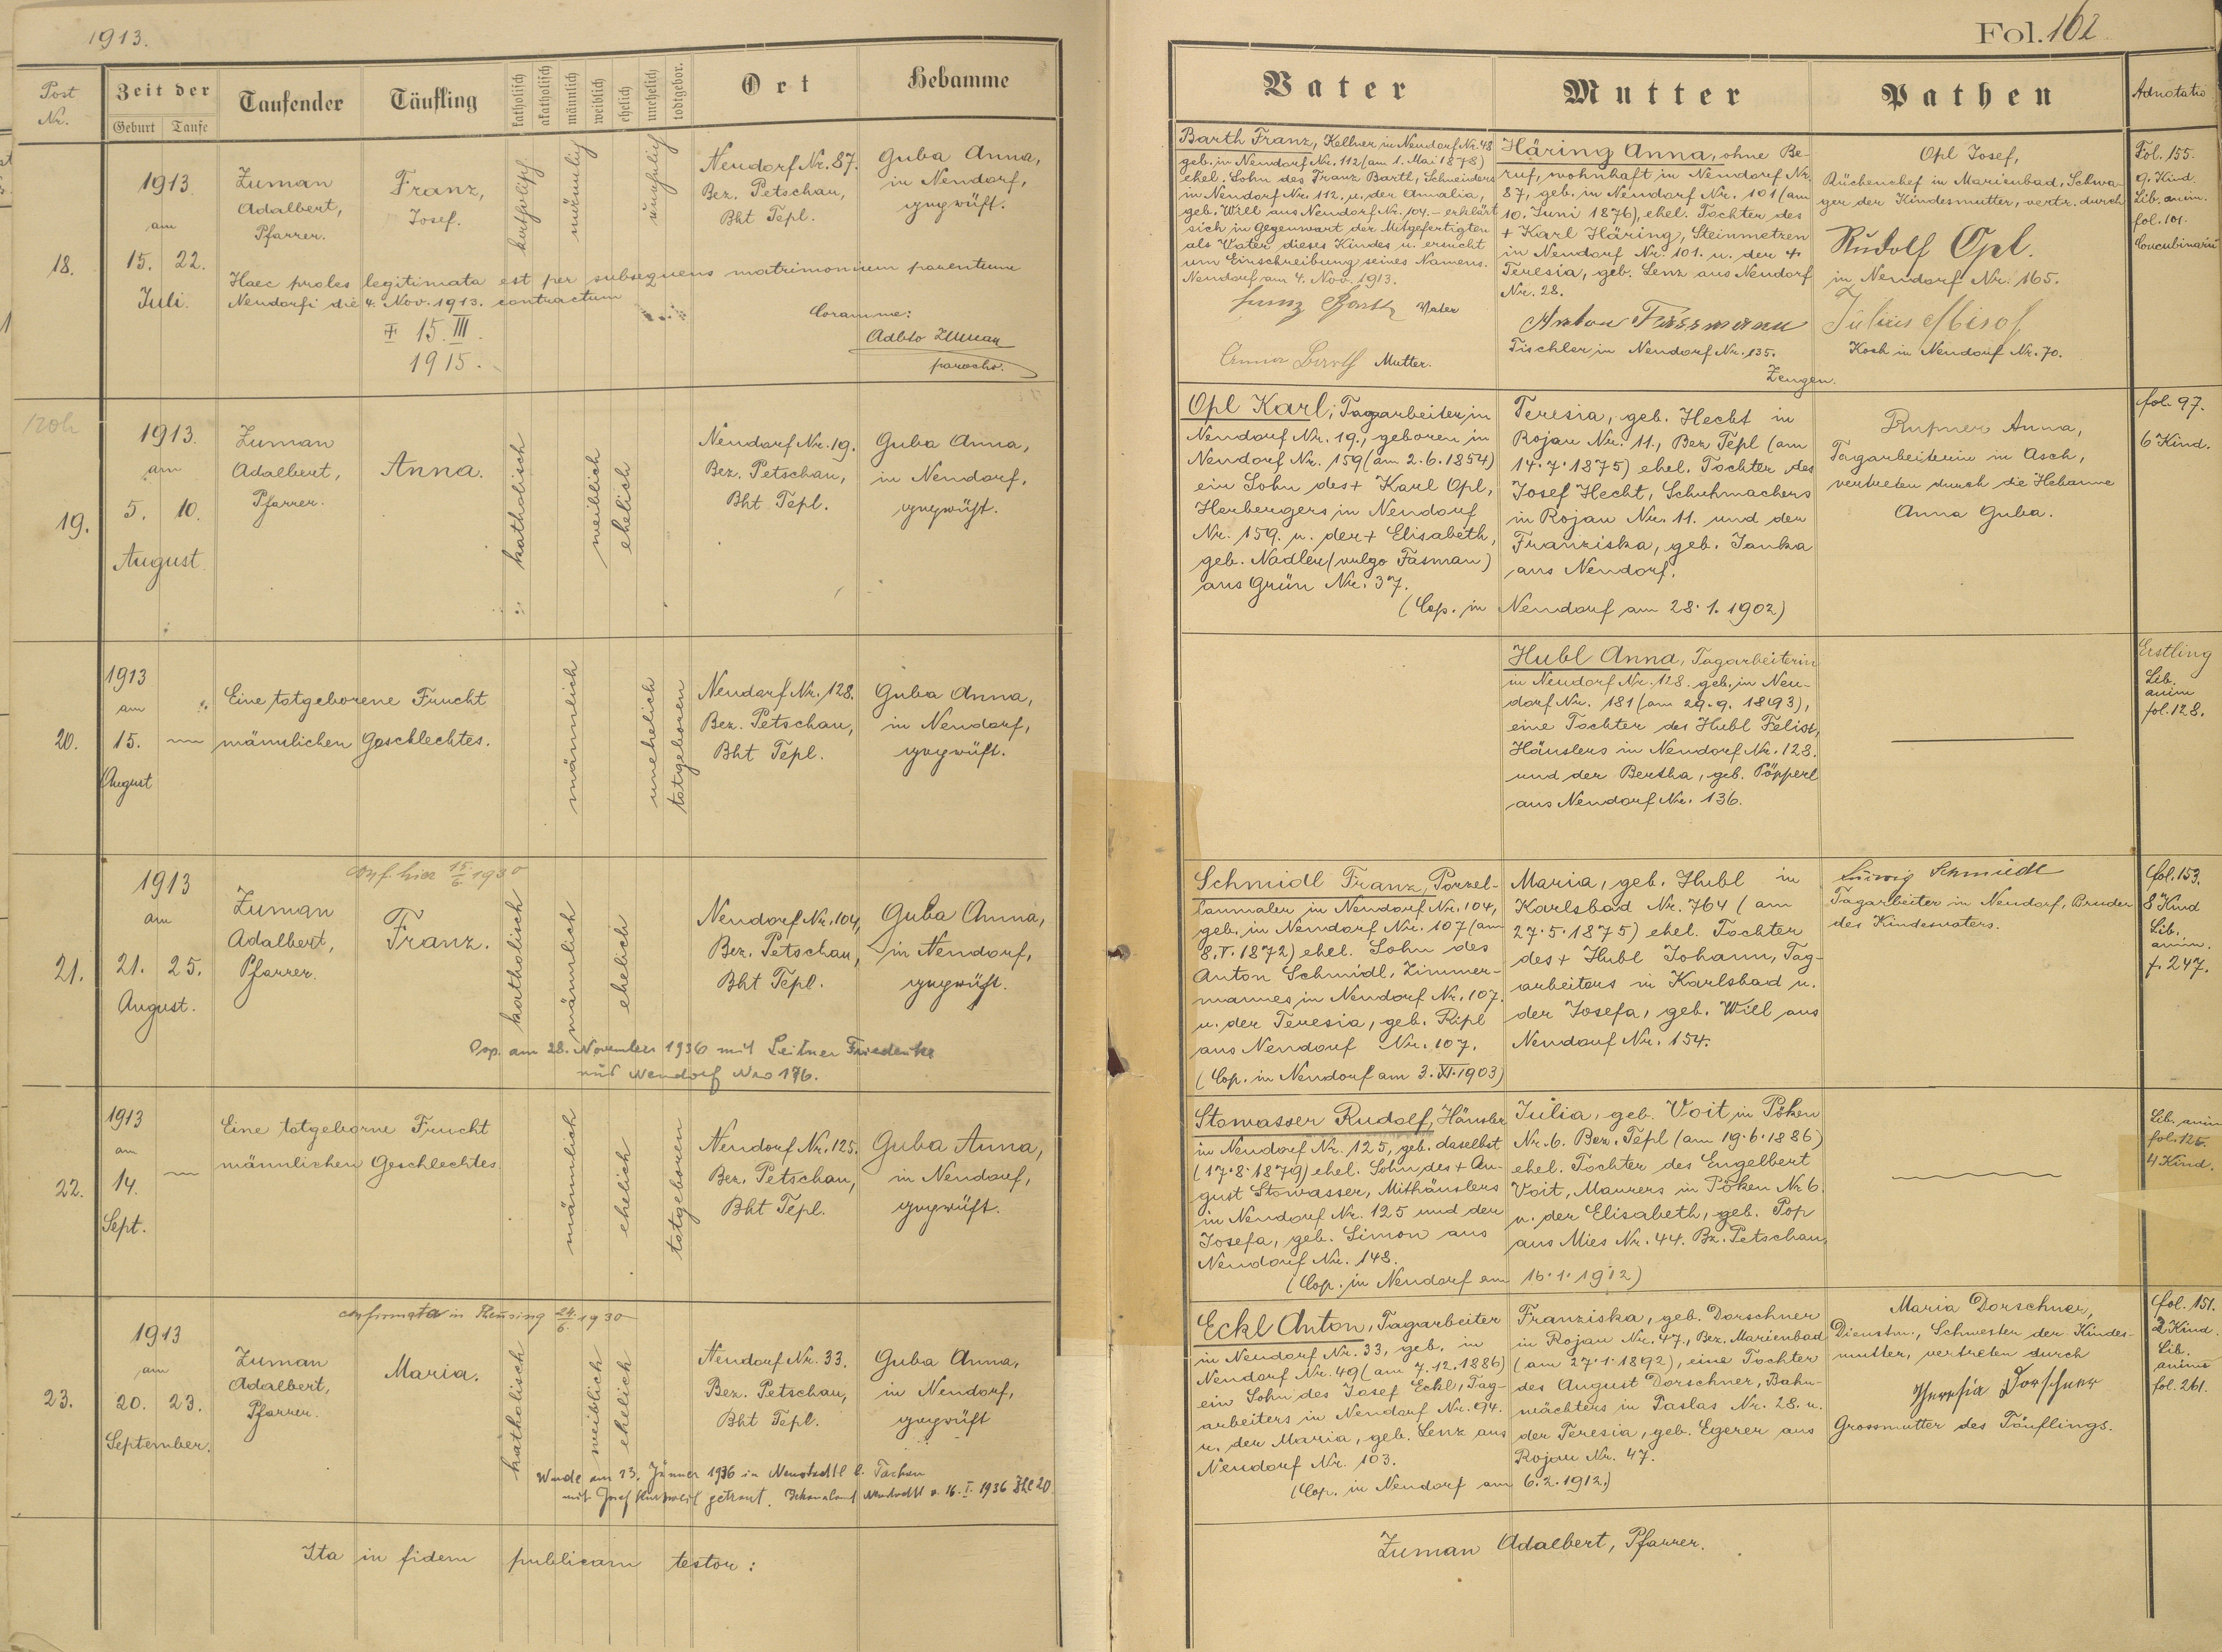 1913.
Fol. 162
Post Nr.
Zeit der
Geburt
Taufe
Taufender
Täufling
katholisch
akatholisch
männlich
weiblich
ehelich
unehelich
todtgebor.
Ort
Hebamme
Vater
Mutter
Pathen
Adnotatio
18.
1913.
am
15. 22.
Juli.
Zuman
Adalbert,
Pfarrer.
Franz,
Josef.
katholisch
männlich
unehelich
Nendorf Nr. 87.
Bez. Petschau,
Bht Tepl.
Guba Anna,
in Nendorf,
geprüft.
Haec proles legitimata est per subsequens matrimonium parentum
Nendorfi die 4. Nov. 1913. contractum
Coram me:
Adbto Zuman
parocho.
15. III.
1915.
Barth Franz, Kellner in Nendorf Nr. 48
geb. in Nendorf Nr. 112 (am 1. Mai 1878)
ehel. Sohn des Franz Barth, Schneiders
in Nendorf Nr. 112. u. der Amalia,
geb. Will aus Nendorf Nr. 104. – erklärt
sich in Gegenwart der Mitgefertigten
als Vater dieses Kindes u. ersucht
um Einschreibung seines Namens.
Nendorf am 4. Nov. 1913.
Franz Barth Vater
Anna Barth Mutter.
Häring Anna, ohne Be-
ruf, wohnhaft in Nendorf Nr.
87, geb. in Nendorf Nr. 101 (am
10. Juni 1876), ehel. Tochter des
+ Karl Häring, Steinmetzen
in Nendorf Nr. 101. u. der +
Teresia, geb. Lenz aus Nendorf
Nr. 28.
Anton Fassmann
Tischler in Nendorf Nr. 135.
Zeugen.
Opl Josef,
Küchenchef in Marienbad, Schwa-
ger der Kindesmutter, vertr. durch
Rudolf Opl.
in Nendorf Nr. 165.
Julius
Koch in Nendorf Nr. 70.
Fol. 155.
9. Kind.
Lib. anim.
fol. 101.
Concubinarii
19.
1913.
am
5. 10.
August.
Zuman
Adalbert,
Pfarrer.
Anna.
katholisch
weiblich
ehelich
Nendorf Nr. 19.
Bez. Petschau,
Bht Tepl.
Guba Anna,
in Nendorf,
geprüft.
Opl Karl, Tagarbeiter in
Nendorf Nr. 19., geboren in
Nendorf Nr. 159 (am 2.6.1854)
ein Sohn des + Karl Opl,
Herbergers in Nendorf
Nr. 159. u. der + Elisabeth,
geb. Nadler (vulgo Fasman)
aus Grün Nr. 37.
(Cop. in Nendorf am 28.1.1902)
Teresia, geb. Hecht in
Rojau Nr. 11., Bez. Tepl (am
14.7.1875) ehel. Tochter des
Josef Hecht, Schuhmachers
in Rojau Nr. 11. und der
Franziska, geb. Janka
aus Nendorf.
Rupner Anna,
Tagarbeiterin in Asch,
vertreten durch die Hebamme
Anna Guba.
fol. 97.
6 Kind.
20.
1913
am
15. —
August
Eine totgeborene Frucht
männlichen Geschlechtes.
männlich
unehelich
totgeboren
Nendorf Nr. 128.
Bez. Petschau,
Bht Tepl.
Guba Anna,
in Nendorf,
geprüft.
Hubl Anna, Tagarbeiterin
in Nendorf Nr. 128. geb. in Nen-
dorf Nr. 181 (am 29.9.1893),
eine Tochter des Hubl Felix,
Häuslers in Nendorf Nr. 128.
und der Bertha, geb. Pöpperl
aus Nendorf Nr. 136.
Erstling
Lib.
anim
fol. 128.
21.
1913
am
21. 25.
August.
conf. hier 15./6. 1930
Zuman
Adalbert,
Pfarrer.
Franz.
katholisch
männlich
ehelich
Nendorf Nr. 104,
Bez. Petschau,
Bht Tepl.
Guba Anna,
in Nendorf,
geprüft.
Cop. am 28. November 1936 mit Leitner Friederike
aus Nendorf Nro 176.
Schmidl Franz, Porzel-
lanmaler in Nendorf Nr. 104,
geb. in Nendorf Nr. 107 (am
8.V.1872) ehel. Sohn des
Anton Schmidl, Zimmer-
mannes in Nendorf Nr. 107.
u. der Teresia, geb. Ripl
aus Nendorf Nr. 107.
(Cop. in Nendorf am 3.XI.1903)
Maria, geb. Hubl in
Karlsbad Nr. 764 (am
27.5.1875) ehel. Tochter
des + Hubl Johann, Tag-
arbeiters in Karlsbad u.
der Josefa, geb. Will aus
Nendorf Nr. 154.
Ludwig Schmidl
Tagarbeiter in Nendorf, Bruder
des Kindesvaters.
fol. 153.
8 Kind
Lib.
anim.
f. 247.
22.
1913
am
14. —
Sept.
Eine totgeborne Frucht
männlichen Geschlechtes.
männlich
ehelich
totgeboren
Nendorf Nr. 125.
Bez. Petschau,
Bht Tepl.
Guba Anna,
in Nendorf,
geprüft.
Stowasser Rudolf, Häusler
in Nendorf Nr. 125, geb. daselbst
(17.8.1879) ehel. Sohn des + Au-
gust Stowasser, Mithäuslers
in Nendorf Nr. 125 und der
Josefa, geb. Simon aus
Nendorf Nr. 148.
(Cop. in Nendorf am 16.1.1912)
Julia, geb. Voit in Pöken
Nr. 6. Bez. Tepl (am 19.6.1886)
ehel. Tochter des Engelbert
Voit, Maurers in Pöken Nr 6.
u. der Elisabeth, geb. Pop
aus Mies Nr. 44. Bz. Petschau.
Lib. anim
fol. 126.
4 Kind.
23.
1913
am
20. 23.
September.
confirmata in Theusing 24./6. 1930
Zuman
Adalbert,
Pfarrer.
Maria.
katholisch
weiblich
ehelich
Nendorf Nr. 33.
Bez. Petschau,
Bht Tepl.
Guba Anna,
in Nendorf,
geprüft
Wurde am 23. Jänner 1936 in Neustadtl b. Tachau
mit Josef getraut. Neustadtl v. 16.I.1936 Zhl 20.
Eckl Anton, Tagarbeiter
in Nendorf Nr. 33, geb. in
Nendorf Nr. 49 (am 7.12.1886)
ein Sohn des Josef Eckl, Tag-
arbeiters in Nendorf Nr. 94.
u. der Maria, geb. Lenz aus
Nendorf Nr. 103.
(Cop. in Nendorf am 6.2.1912.)
Franziska, geb. Dorschner
in Rojau Nr. 47., Bez. Marienbad
(am 27.1.1892), eine Tochter
des August Dorschner, Bahn-
wächters in Paslas Nr. 28. u.
der Teresia, geb. Egerer aus
Rojau Nr. 47.
Maria Dorschner,
Dienstm., Schwester der Kindes-
mutter, vertreten durch
Theresia Dorschner
Grossmutter des Täuflings.
fol. 151.
2 Kind.
Lib.
anims
fol. 261.
Ita in fidem publicam testor:
Zuman Adalbert, Pfarrer.